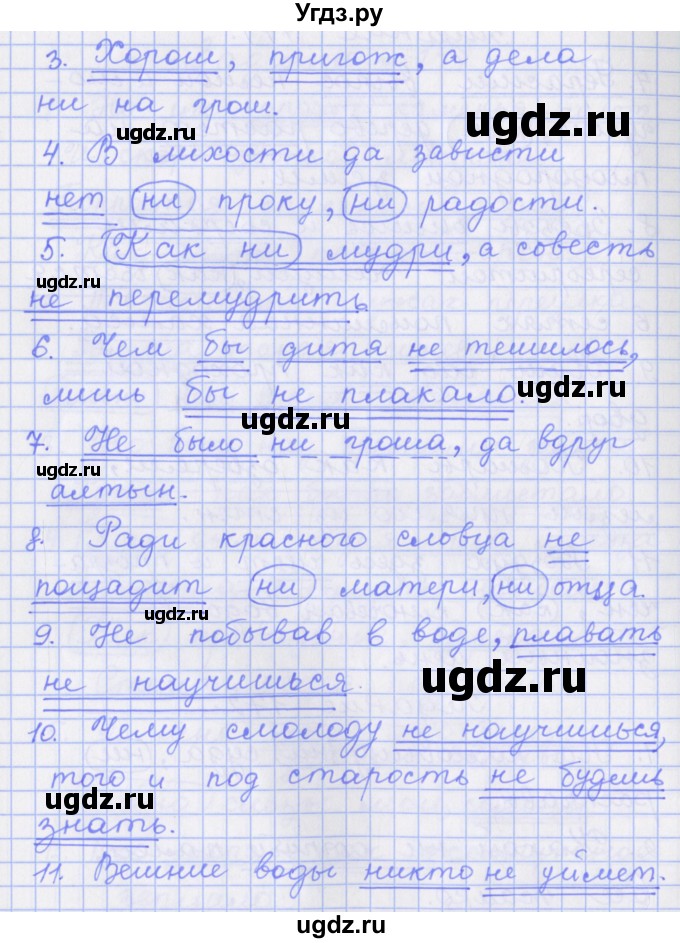 Угдз.ру
3. Хорош, пригож, а дела
ни на грош.
ugdz.ru
ugdz.ru
4. В лихости да зависти
нет ни проку, ни радости.
5. Как ни мудри, а совесть
ugdz.ru
не перемудрить.
6. Чем бы дитя не тешилось,
ugdz.ru
лишь бы не плакало.
ugdz.ru
7. Не было ни гроша, да вдруг
ugdz.ru
алтын.
8. Ради красного словца не
пощадит ни матери, ни отца.
ugdz.ru
9. Не побывав в воде, плавать
ugdz.ru
не научишься.
10. Чему смолоду не научишься,
того и под старость не будешь
ugdz.ru
знать.
11. Вешние воды никто не уймет.
ugdz.ru